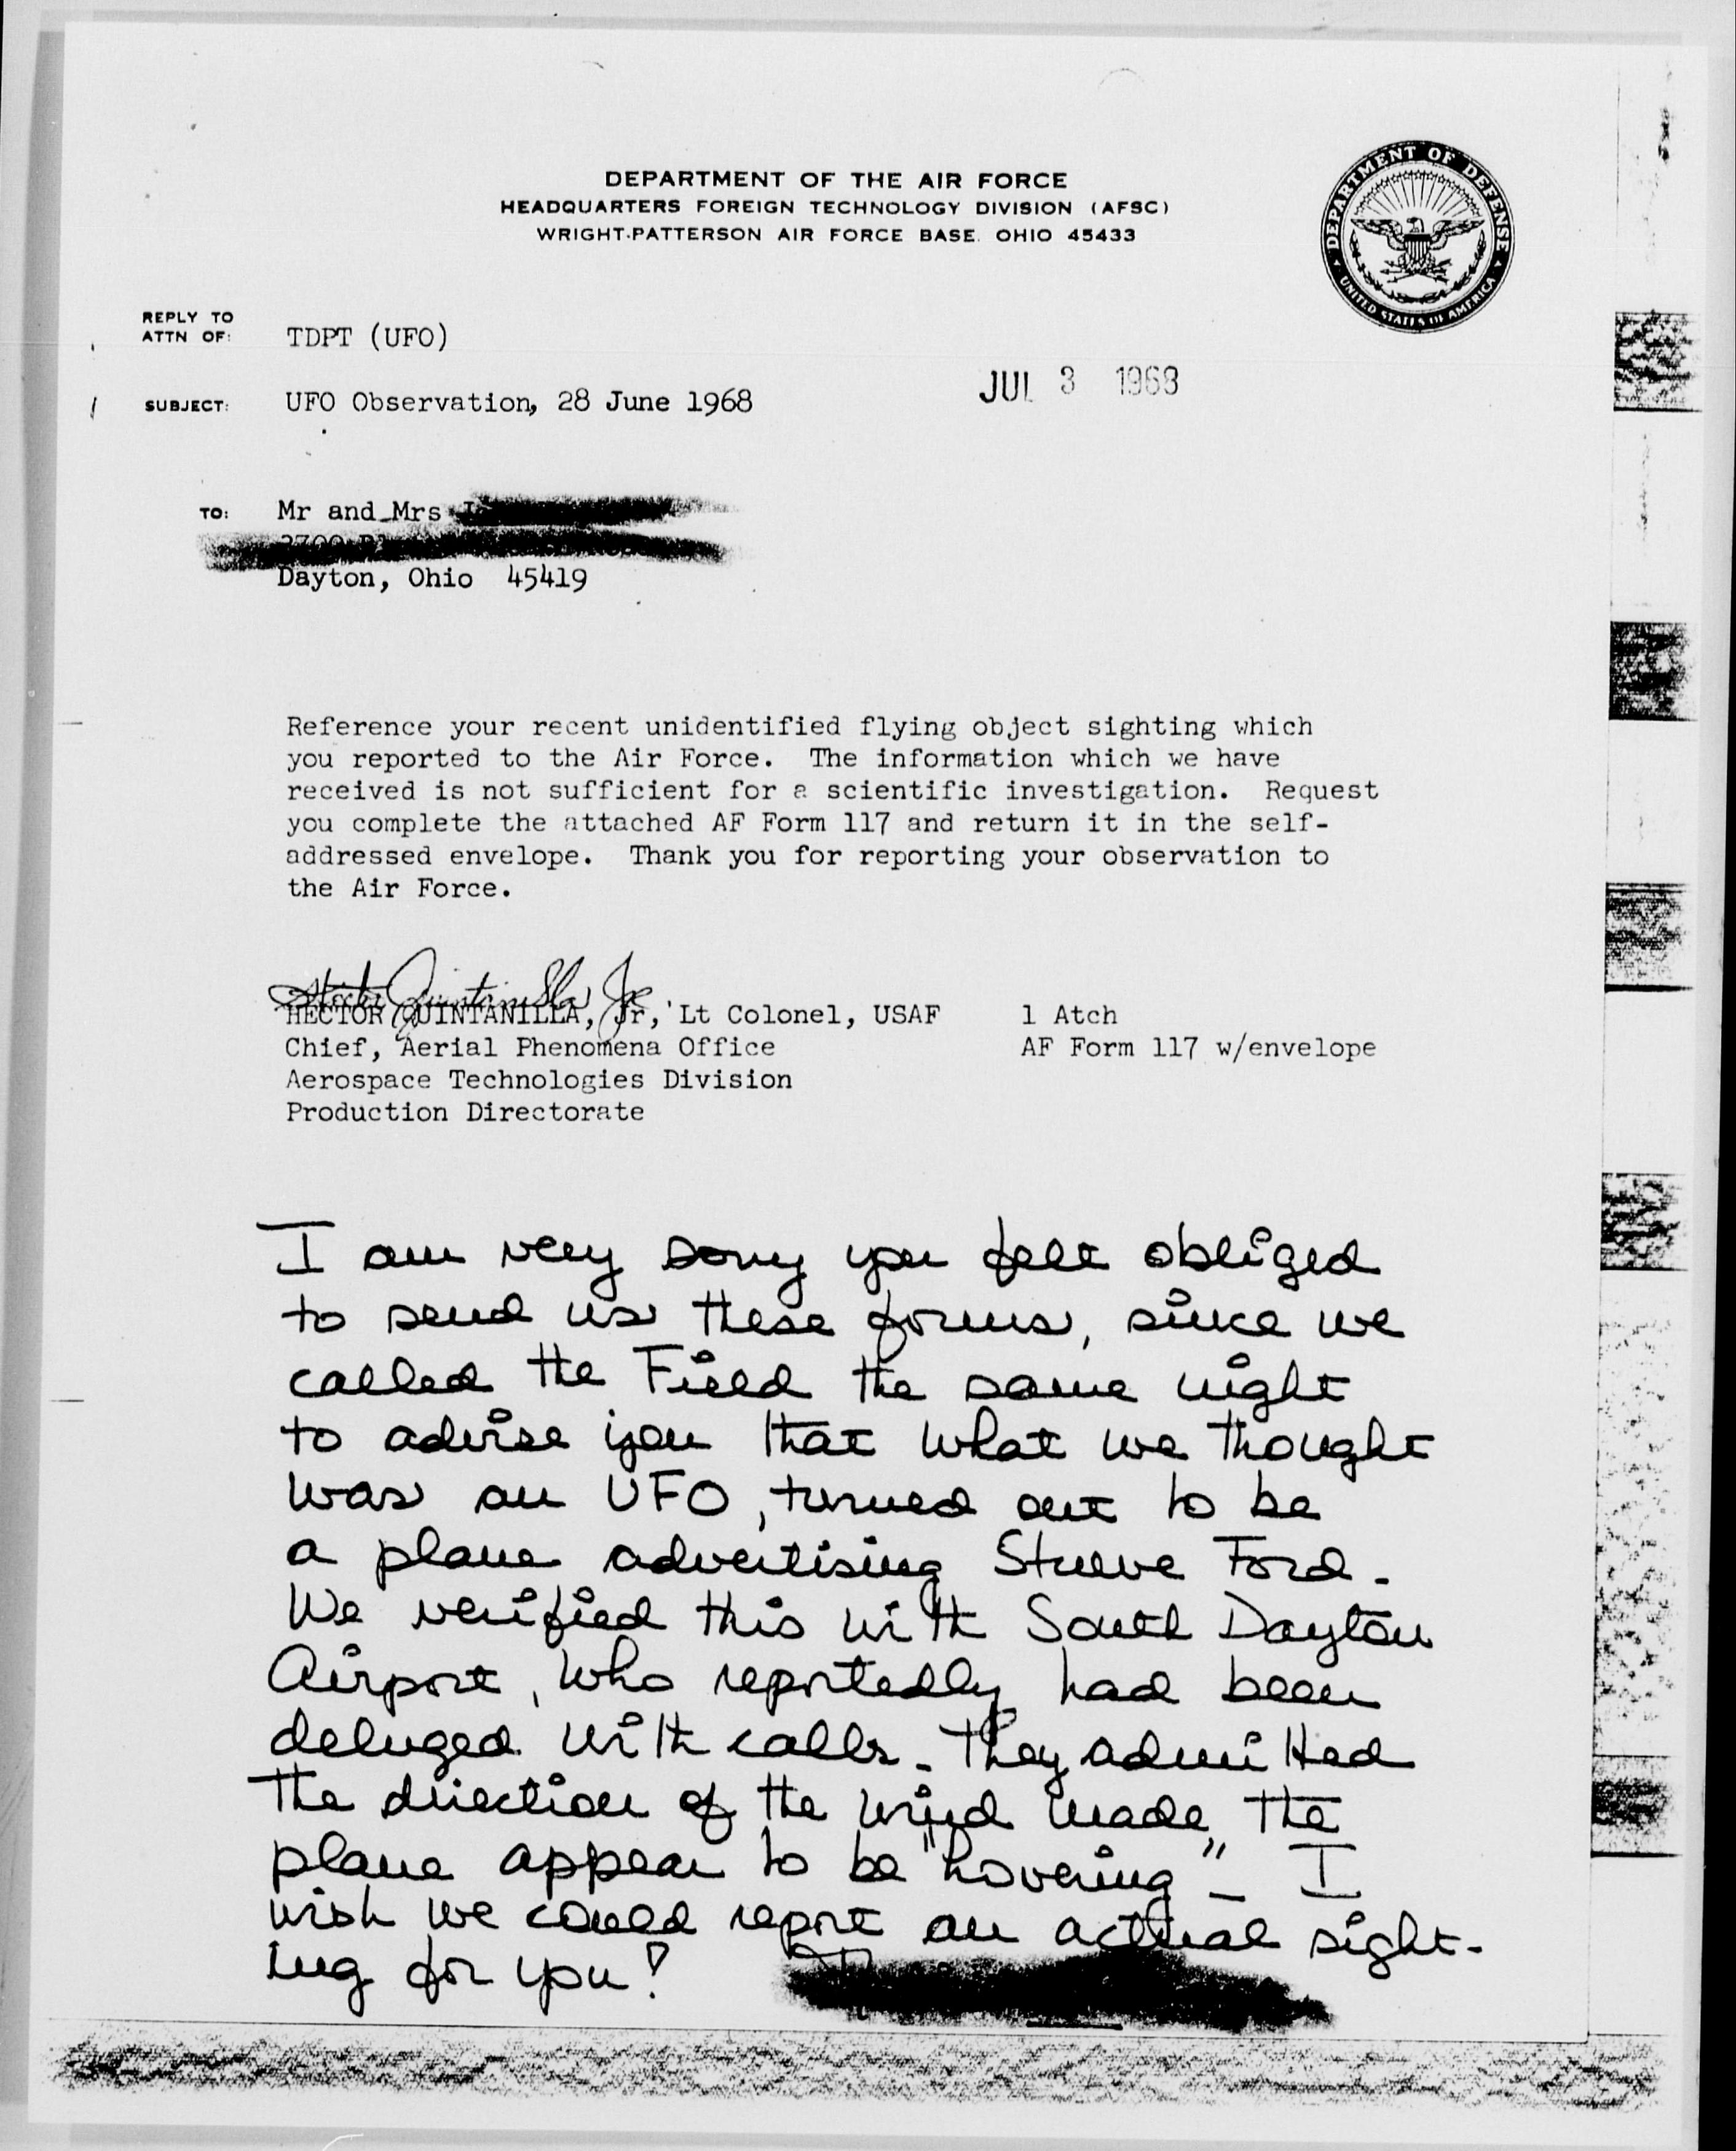 DEPARTMENT OF THE AIR FORCE
HEADQUARTERS FOREIGN TECHNOLOGY DIVISION (AFSC)
WRIGHT-PATTERSON AIR FORCE BASE. OHIO 45433
DEPARTMENT OF DEFENSE
UNITED STATES OF AMERICA
REPLY TO
ATTN OF: TDPT (UFO)
JUL 3 1968
SUBJECT: UFO Observation, 28 June 1968
TO: Mr and Mrs
Dayton, Ohio 45419
Reference your recent unidentified flying object sighting which
you reported to the Air Force. The information which we have
received is not sufficient for a scientific investigation. Request
you complete the attached AF Form 117 and return it in the self-
addressed envelope. Thank you for reporting your observation to
the Air Force.
Hector Quintanilla, Jr
HECTOR QUINTANILLA, Jr, Lt Colonel, USAF
Chief, Aerial Phenomena Office
Aerospace Technologies Division
Production Directorate
1 Atch
AF Form 117 w/envelope
I am very sorry you felt obliged
to send us these forms, since we
called the Field the same night
to advise you that what we thought
was an UFO, turned out to be
a plane advertising Ford.
We verified this with South Dayton
Airport, who reportedly had been
deluged with calls. They admitted
the direction of the wind made the
plane appear to be "hovering" - I
wish we could report an actual sight-
ing for you!